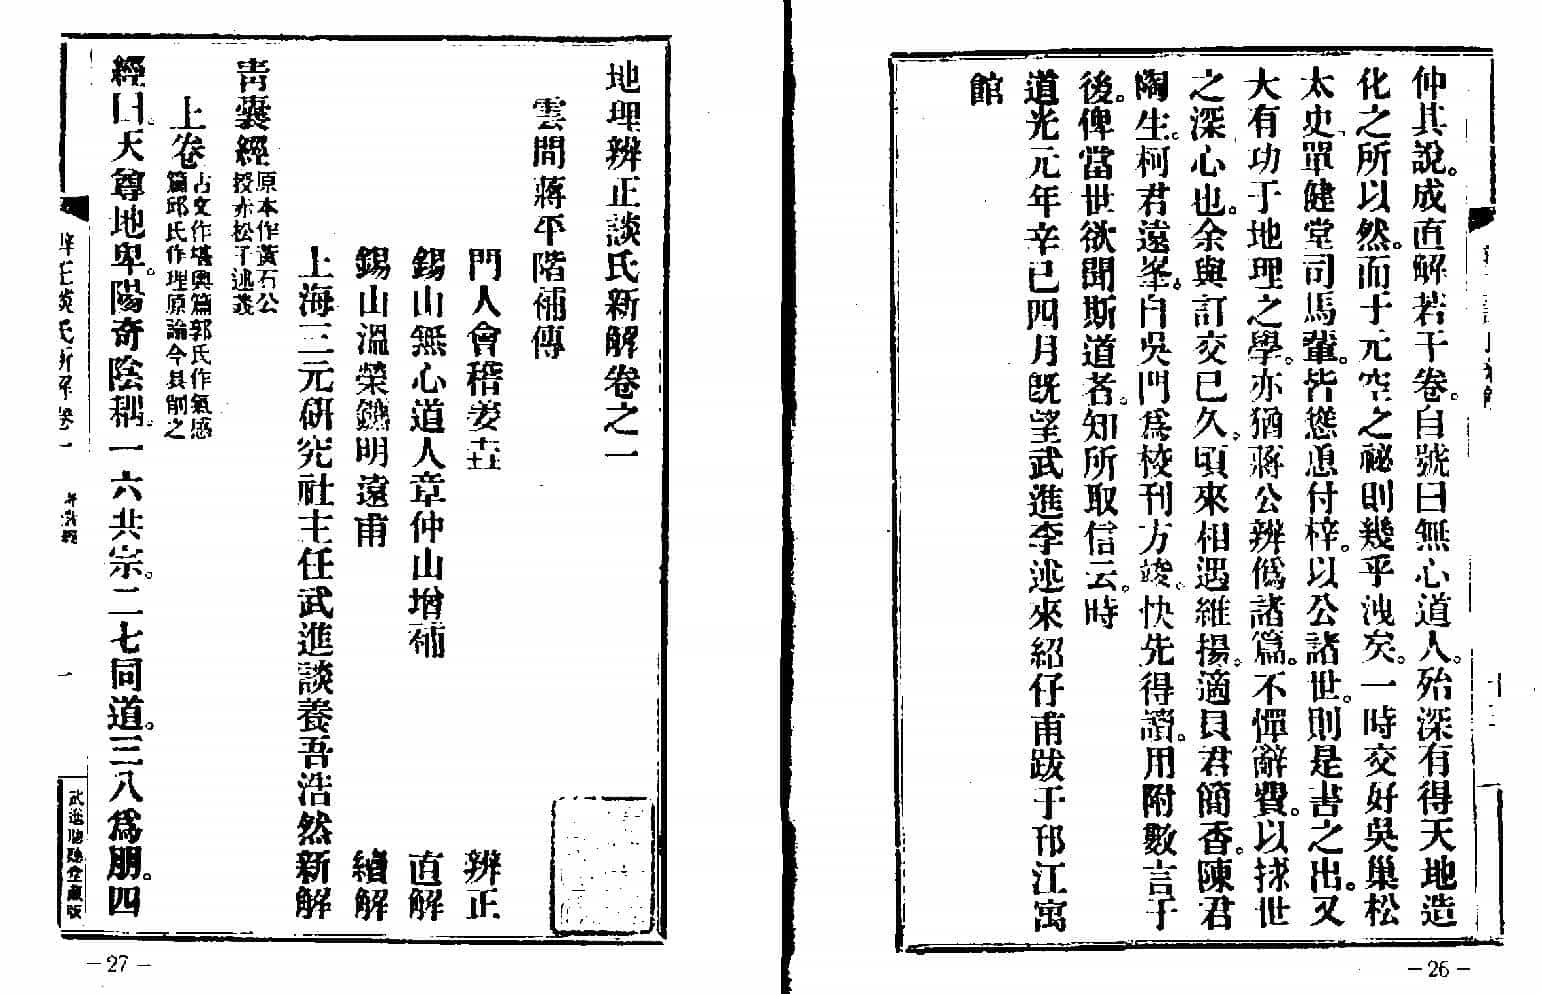 仲其說。成直解若干卷。自號曰無心道人。殆深有得天地造
化之所以然。而于元空之祕則幾乎洩矣。一時交好吳巢松
太史單健堂司馬輩。皆慫恿付梓。以公諸世。則是書之出。又
大有功于地理之學。亦猶蔣公辨僞諸篇。不憚辭費。以捄世
之深心也。余與訂交已久。頃來相遇維揚。適貝君簡香。陳君
陶生。柯君遠峯。自吳門爲校刊方竣。快先得讀。用附數言于
後。俾當世欲聞斯道者。知所取信云。時
道光元年辛巳四月旣望武進李述來紹仔甫跋于邗江寓
館
—26—
地理辨正談氏新解卷之一
雲間蔣平階補傳
門人會稽姜垚 辨正
錫山無心道人章仲山增補 直解
錫山溫榮鑣明遠甫 續解
上海三元研究社主任武進談養吾浩然新解
靑囊經 原本作黃石公
授赤松子述義
上卷 古文作堪輿篇郭氏作氣感
篇邱氏作理原論今具削之
經曰。天尊地卑。陽奇陰耦。一六共宗。二七同道。三八爲朋。四
辨正談氏新解卷一
一
武進聽聰堂藏版
—27—